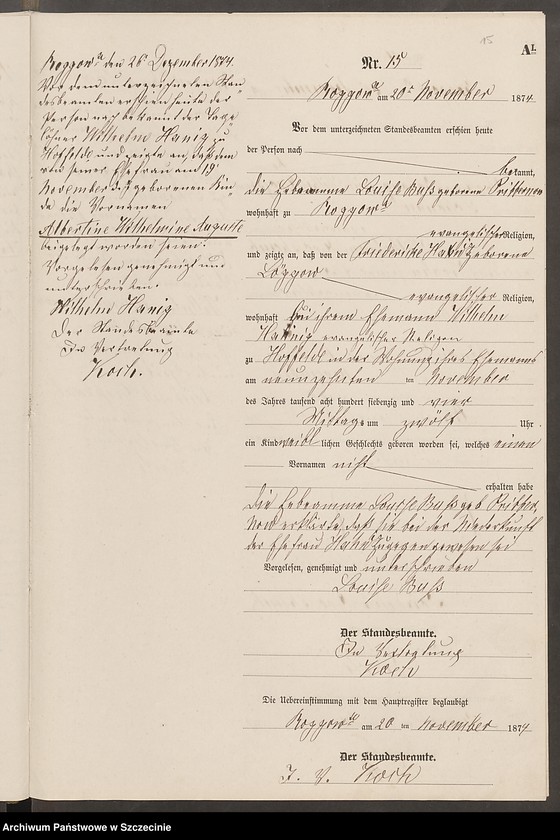 Roggow a den 26 Dezember 1874.
Vor dem unterzeichneten Stan-
desbeamten erschien heute der
Person nach bekannt der Tage-
löhner Wilhelm Hanig zu
Hoffelde und zeigte an, daß dem
von seiner Ehefrau am 19
November d. J. geborenen Kin-
de die Vornamen
Albertine Wilhelmine Auguste
beigelegt worden seien.
Vorgelesen genehmigt und
unterschrieben.
Wilhelm Hanig
Der Standesbeamte
In Vertretung
Koch.
15
A1.
Nr. 15
Roggow a am 20 ten November 1874
Vor dem unterzeichneten Standesbeamten erschien heute
der Person nach
bekannt,
die Hebeamme Louise Buß geborene
wohnhaft zu Roggow a
evangelischer Religion,
und zeigte an, daß von der Friedericke geborene
Löggow
evangelischer Religion,
wohnhaft bei ihrem Ehemann Wilhelm
evangelischer Religion
zu Hoffelde in der Wohnung ihres Ehemanns
am neunzehnten ten November
des Jahres tausend acht hundert siebenzig und vier
Mittags um zwölf Uhr
ein Kind weiblichen Geschlechts geboren worden sei, welches einen
Vornamen nicht
erhalten habe
Die Hebeamme Louise Buß geb
erklärte, daß sie bei der Niederkunft
der Ehefrau zugegen gewesen sei
Vorgelesen, genehmigt und unterschrieben
Louise Buß
Der Standesbeamte.
In Vertretung
Koch
Die Uebereinstimmung mit dem Hauptregister beglaubigt
Roggow a am 20 ten November 1874
Der Standesbeamte.
I. V. Koch
Archiwum Państwowe w Szczecinie